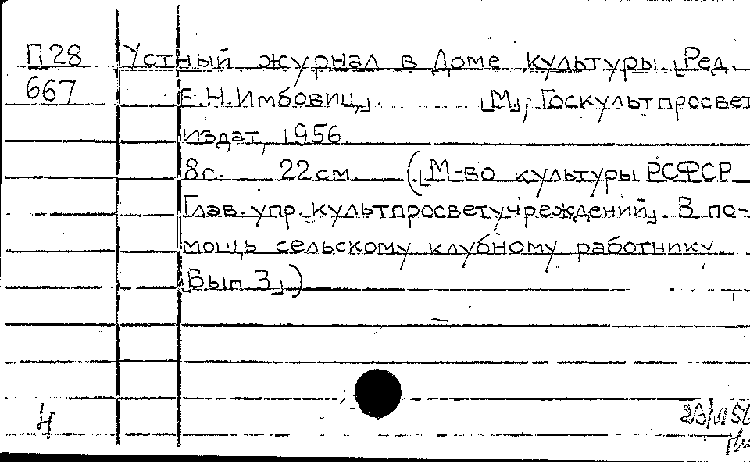 П28 Устный журнал в Доме культуры. [Ред.
667 Е.Н.Имбовиц] ... ... [М], Госкультпросвет
издат, 1956.
8с. 22см. ([М-во культуры РСФСР
Глав. упр. культпросветучреждений]. В по-
мощь сельскому клубному работнику
[Вып 3])
Ч